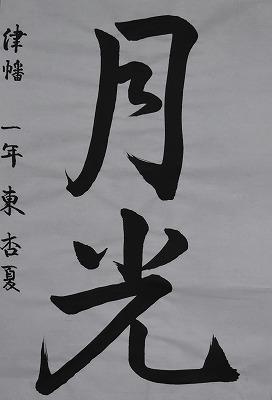 月光
津幡 一年 東 杏夏